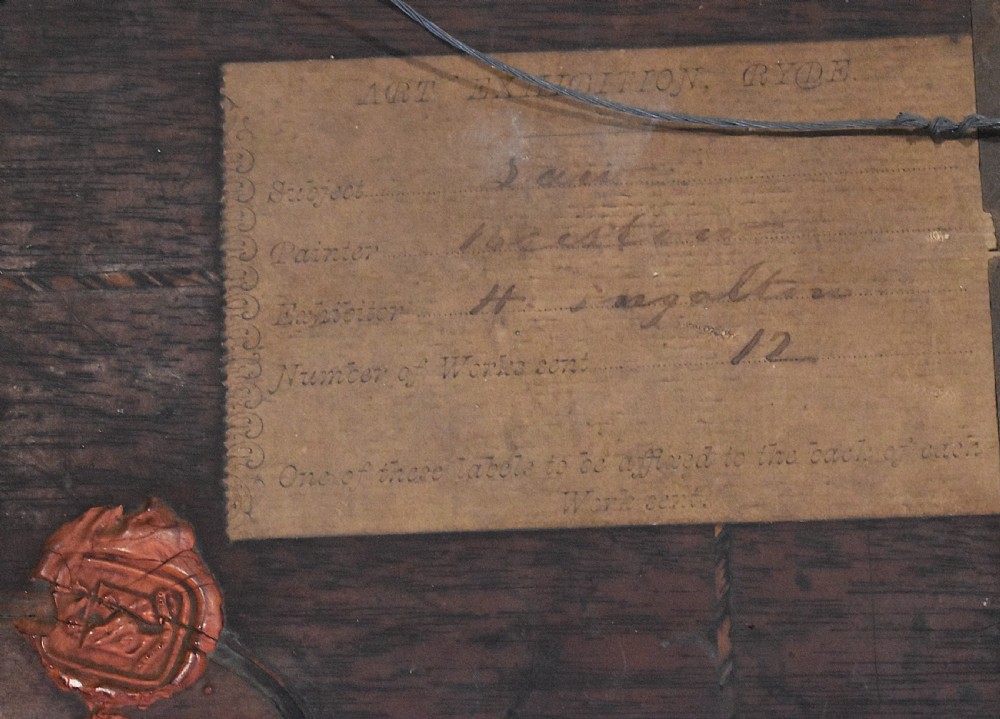 ART EXHIBITION, RYDE.
Subject
Painter
Exhibitor H.
Number of Works sent 12
One of these labels to be affixed to the back of each
Work sent.